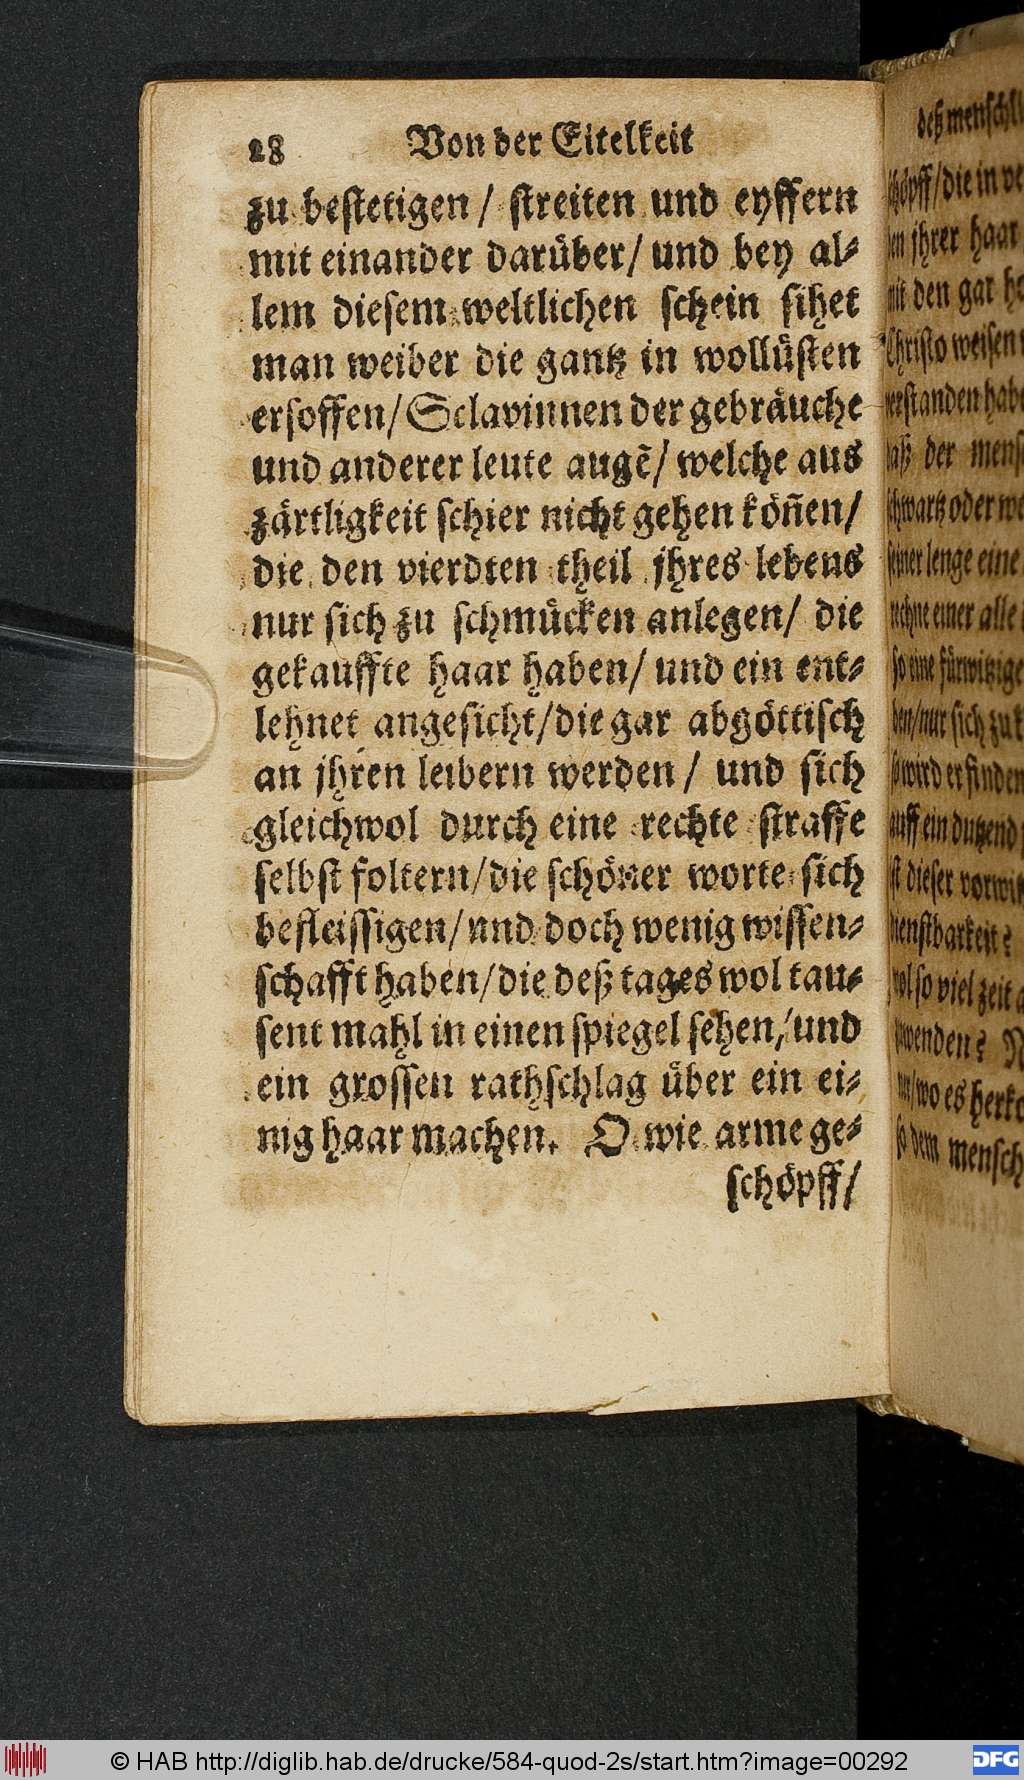 28 Von der Eitelkeit
zu bestetigen / streiten und eyffern
mit einander darüber / und bey al-
lem diesem weltlichen schein sihet
man weiber die gantz in wollüsten
ersoffen / Sclavinnen der gebräuche
und anderer leute augẽ / welche aus
zärtligkeit schier nicht gehen köñen /
die den vierdten theil jhres lebens
nur sich zu schmücken anlegen / die
gekauffte haar haben / und ein ent-
lehnet angesicht / die gar abgöttisch
an jhren leibern werden / und sich
gleichwol durch eine rechte straffe
selbst foltern / die schöner worte sich
befleissigen / und doch wenig wissen-
schafft haben / die deß tages wol tau-
sent mahl in einen spiegel sehen / und
ein grossen rathschlag über ein ei-
nig haar machen. O wie arme ge-
schöpff /
deß menschli
schöpff / die in
jhrer haar
mit den gar
Christo weisen
verstanden
daß der mens
schwartz oder
seiner lenge eine
rechne einer alle
so eine fürwitzige
ben / nur sich zu
so wird er finden
auff ein dutzend
ist dieser vorwitz
dienstbarkeit?
wol so viel zeit
wenden?
wo es
so dem mensch
© HAB http://diglib.hab.de/drucke/584-quod-2s/start.htm?image=00292
DFG